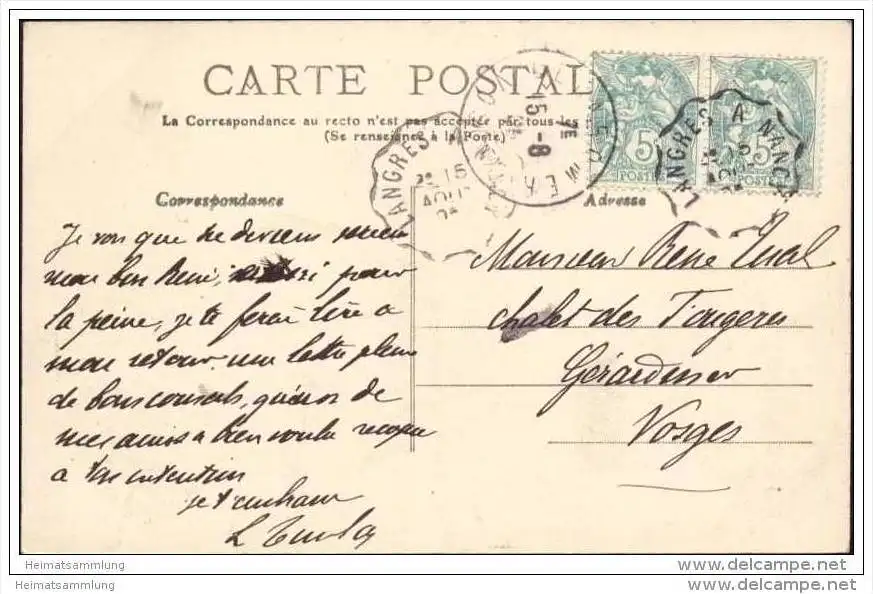 CARTE POSTALE
La Correspondance au recto n'est pas acceptée par tous les
(Se renseigner à la Poste)
LANGRES A
15
AOUT
15 -8
LANGRES A NANCY
15
AOUT
5
POSTE
5
POSTE
Correspondance
Adresse
Je vois que tu deviens
mon bon René, pour
la peine, je te ferai lire à
mon retour une lettre pleine
de bons conseils, qu'un de
mes amis a bien voulu
à ton intention
je t'embrasse
Monsieur René
chalet des Fougères
Gérardmer
Vosges
Heimatsammlung
Heimatsammlung
www.delcampe.net
www.delcampe.net